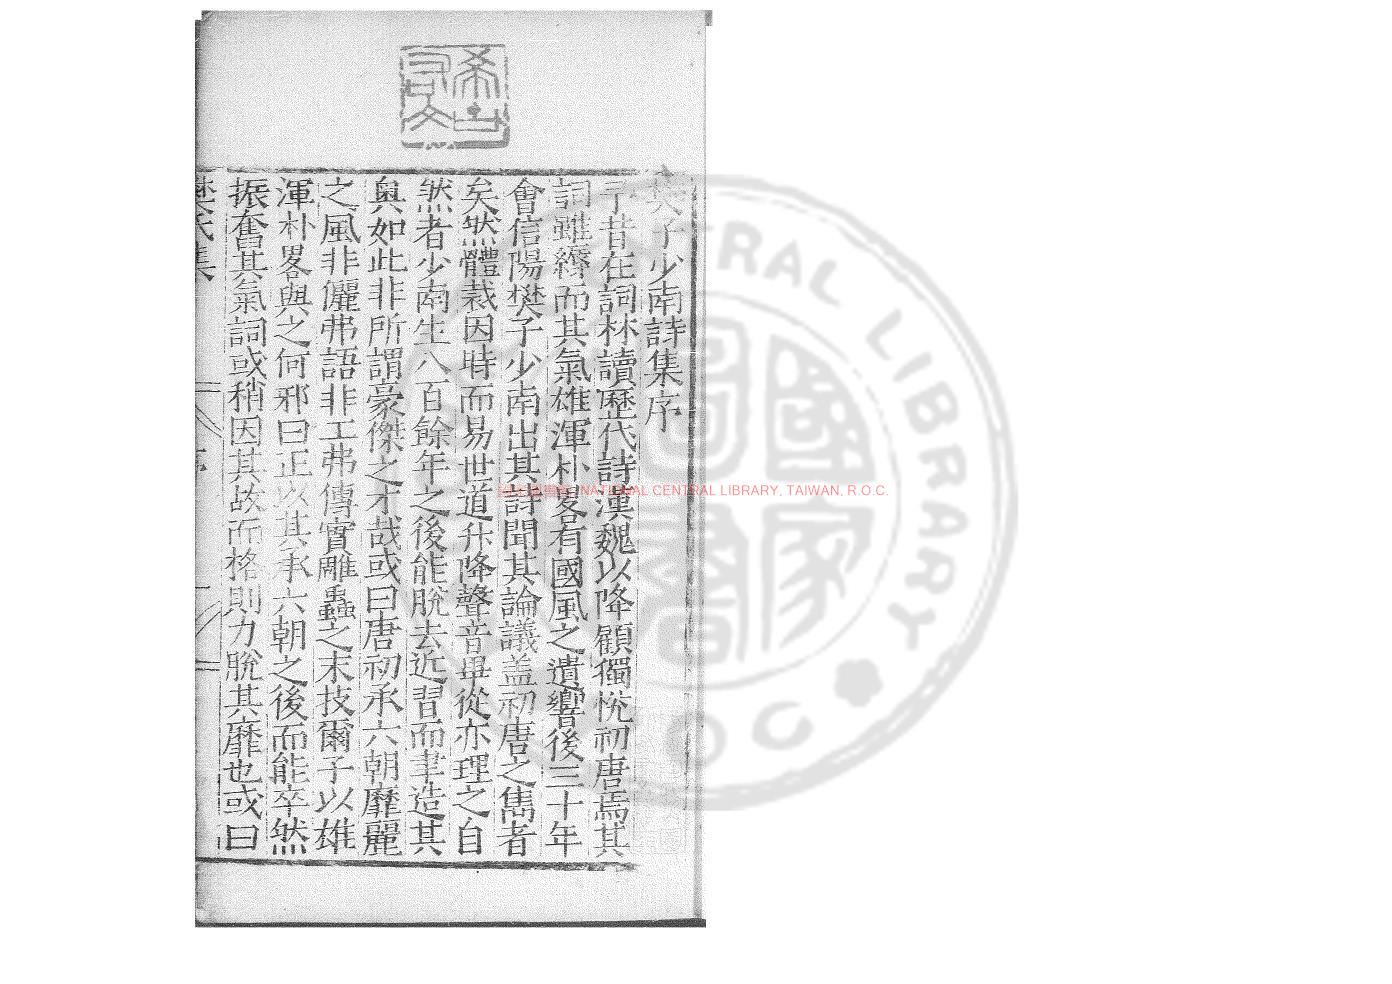 樊子少南詩集序
予昔在詞林讀歷代詩漢魏以降顧獨恱初唐焉其
詞雖縟而其氣雄渾朴畧有國風之遺響後三十年
會信陽樊子少南出其詩聞其論議盖初唐之雋者
矣然體裁因時而易世道升降聲音毋從亦理之自
然者少南生八百餘年之後能脫去近習而聿造其
奥如此非所謂豪傑之才哉或曰唐初承六朝靡麗
之風非儷弗語非工弗傳實雕蟲之末技爾子以雄
渾朴畧與之何邪曰正以其承六朝之後而能卒然
振奮其氣詞或稍因其故而格則力脫其靡也或曰
樊氏集
序
NATIONAL CENTRAL LIBRARY, TAIWAN, R.O.C.